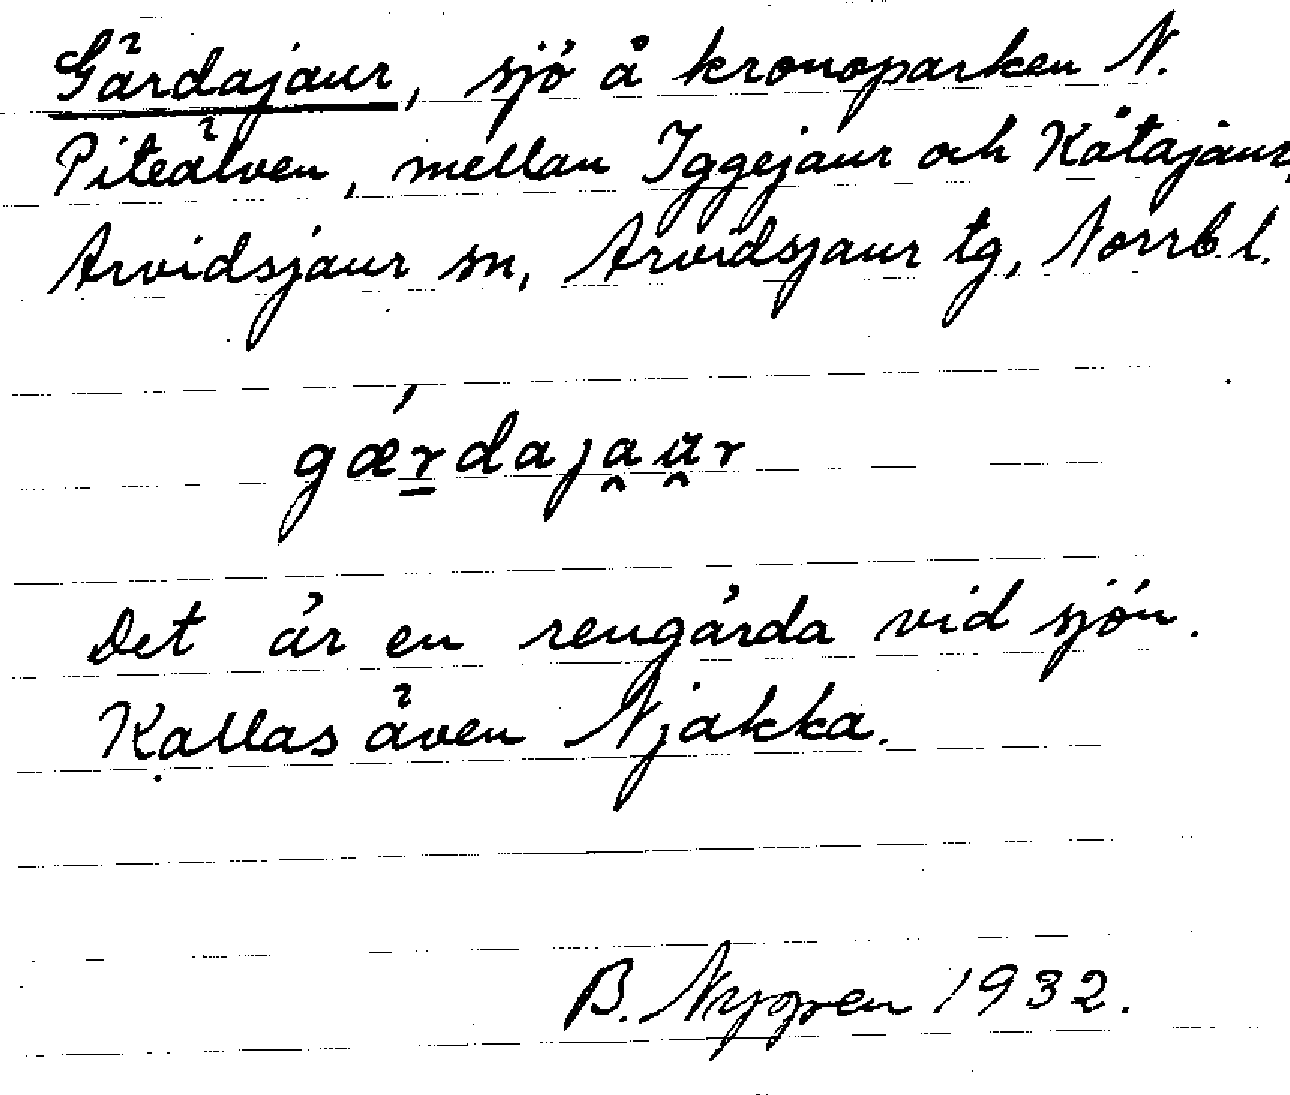 Gärdajaur, sjö å kronoparken N.
Piteälven, mellan Iggejaur och Kåtajaur,
Arvidsjaur sn, Arvidsjaur tg, Norrb. l.
gǽr̲daja̯u̯r
Det är en rengärda vid sjön.
Kallas även Njakka.
B. Nygren 1932.